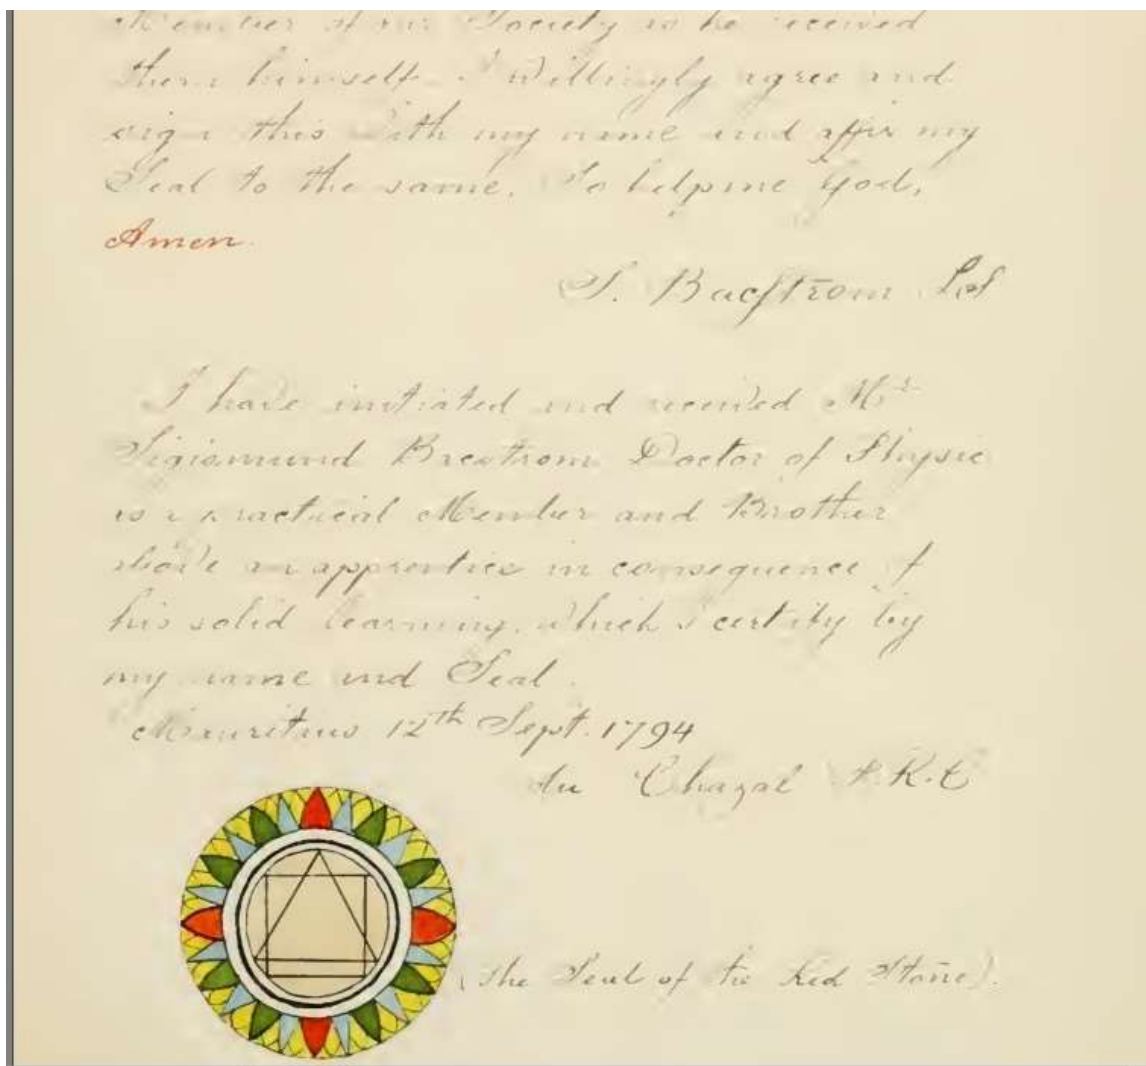 Member of our Society as he received
them himself. I Willingly agree and
sign this With my name and affix my
Seal to the same. So help me God,
Amen.
S. Bacstrom
I have initiated and received Mr
Sigismund Doctor of Physic
as a practical Member and Brother
above an apprentice in consequence of
his solid learning. Which I certify by
my name and Seal.
Mauritius 12th Sept. 1794
du Chazal F.R.C
(The Seal of the Red Stone).